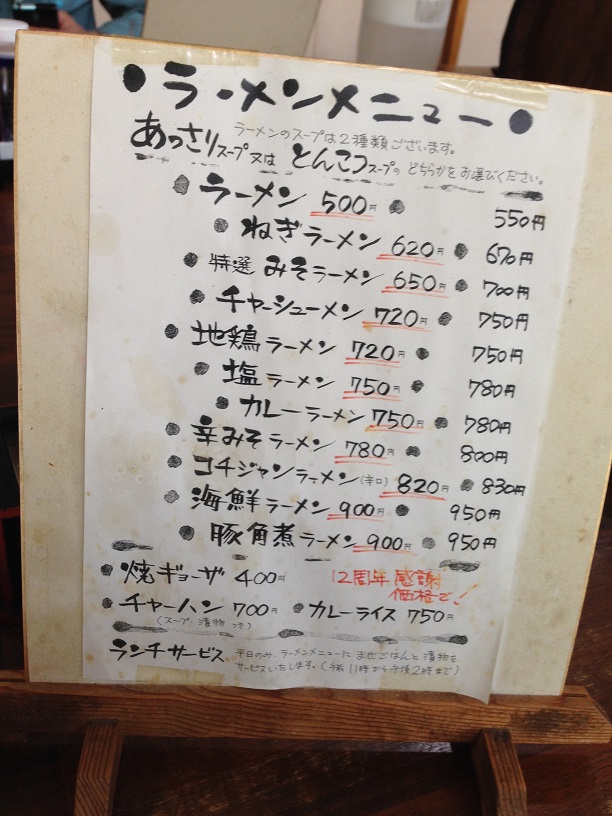 •ラーメンメニュー•
ラーメンのスープは2種類ございます。
あっさりスープ又は とんこつスープの どちらかをお選びください。
●ラーメン 500円 ● 550円
●ねぎラーメン 620円 ● 670円
●特選 みそラーメン 650円 ● 700円
●チャーシューメン 720円 ● 750円
●地鶏ラーメン 720円 ● 750円
●塩ラーメン 750円 ● 780円
●カレーラーメン 750円 ● 780円
●辛みそラーメン 780円 ● 800円
●コチジャンラーメン(辛口) 820円 ● 830円
●海鮮ラーメン 900円 ● 950円
●豚角煮ラーメン 900円 ● 950円
●焼ギョーザ 400円 12周年 感謝
価格で!
●チャーハン 700円 ●カレーライス 750円
(スープ・漬物つき)
ランチサービス 平日のみ、ラーメンメニューに まぜごはんと漬物を
サービスいたします。(午前11時から午後2時まで)